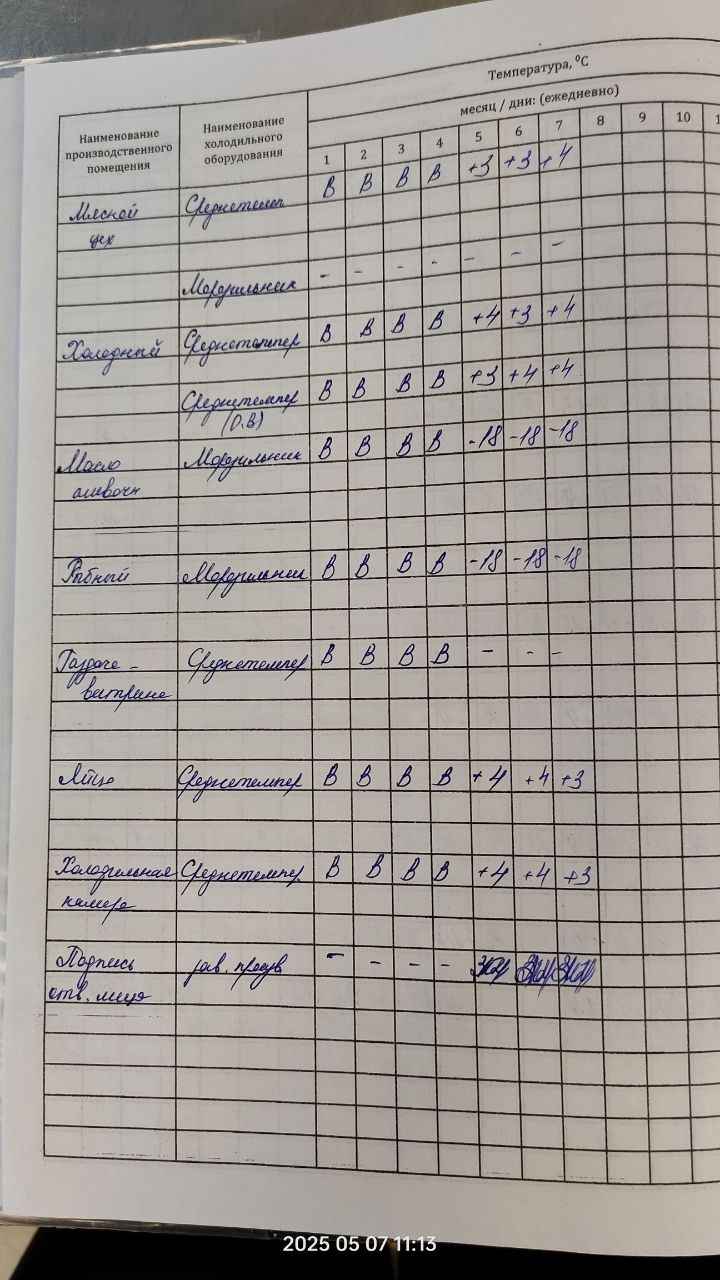 Температура, ⁰С
месяц / дни: (ежедневно)
Наименование производственного помещения
Наименование холодильного оборудования
1 2 3 4 5 6 7 8 9 10 1
Мясной Среднетемп В В В В +3 +3 +4
цех
Морозильник - - - - - - -
Холодный Среднетемпер В В В В +4 +3 +4
Среднетемпер В В В В +3 +4 +4
(О.В)
Масло Морозильник В В В В -18 -18 -18
сливочн
Рыбный Морозильник В В В В -18 -18 -18
Раздача - Среднетемпер В В В В - - -
витрина
Яйцо Среднетемпер В В В В +4 +4 +3
Холодильная Среднетемпер В В В В +4 +4 +3
камера
Подпись зав. произв - - - -
отв. лица
2025 05 07 11:13